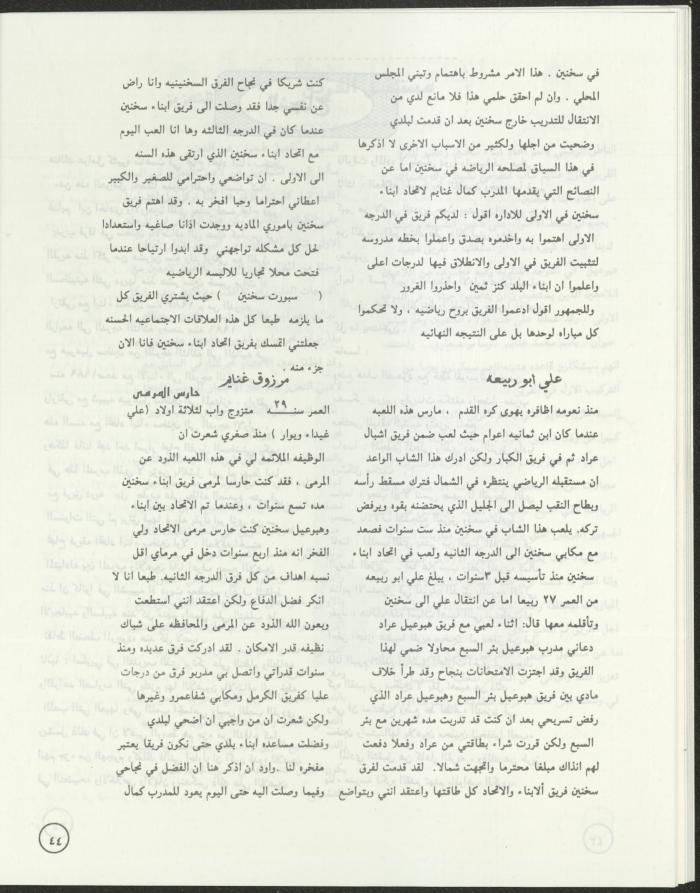 في سخنين . هذا الامر مشروط باهتمام وتبني المجلس
المحلي . وان لم احقق حلمي هذا فلا مانع لدي من
الانتقال للتدريب خارج سخنين بعد ان قدمت لبلدي
وضحيت من اجلها ولكثير من الاسباب الاخرى لا اذكرها
في هذا السياق لمصلحه الرياضه في سخنين اما عن
النصائح التي يقدمها المدرب كمال غنايم لاتحاد ابناء
سخنين في الاولى للاداره اقول : لديكم فريق في الدرجه
الاولى اهتموا به واخدموه بصدق واعملوا بخطه مدروسه
لتثبيت الفريق في الاولى والانطلاق فيها لدرجات اعلى
واعلموا ان ابناء البلد كنز ثمين واحذروا الغرور
وللجمهور اقول ادعموا الفريق بروح رياضيه ، ولا تحكموا
كل مباراه لوحدها بل على النتيجه النهائيه
علي ابو ربيعه
منذ نعومه اظافره يهوى كره القدم ، مارس هذه اللعبه
عندما كان ابن ثمانيه اعوام حيث لعب ضمن فريق اشبال
عراد ثم في فريق الكبار ولكن ادرك هذا الشاب الواعد
ان مستقبله الرياضي ينتظره في الشمال فترك مسقط رأسه
وبطاح النقب ليصل الى الجليل الذي يحتضنه بقوه ويرفض
تركه. يلعب هذا الشاب في سخنين منذ ست سنوات فصعد
مع مكابي سخنين الى الدرجه الثانيه ولعب في اتحاد ابناء
سخنين منذ تأسيسه قبل ٣سنوات ، يبلغ علي ابو ربيعه
من العمر ٢٧ ربيعا اما عن انتقال علي الى سخنين
وتأقلمه معها قال: اثناء لعبي مع فريق هبوعيل عراد
دعاني مدرب هبوعيل بئر السبع محاولا ضمي لهذا
الفريق وقد اجتزت الامتحانات بنجاح وقد طرأ خلاف
مادي بين فريق هبوعيل بئر السبع وهبوعيل عراد الذي
رفض تسريحي بعد ان كنت قد تدربت مده شهرين مع بئر
السبع ولكن قررت شراء بطاقتي من عراد وفعلا دفعت
لهم انذاك مبلغا محترما واتجهت شمالا. لقد قدمت لفرق
سخنين فريق ألابناء والاتحاد كل طاقتها واعتقد انني وبتواضع
كنت شريكا في نجاح الفرق السخنينيه وانا راض
عن نفسي جدا فقد وصلت الى فريق ابناء سخنين
عندما كان في الدرجه الثالثه وها انا العب اليوم
مع اتحاد ابناء سخنين الذي ارتقى هذه السنه
الى الاولى . ان تواضعي واحترامي للصغير والكبير
اعطاني احتراما وحبا افخر به . وقد اهتم فريق
سخنين باموري الماديه ووجدت اذانا صاغيه واستعدادا
لحل كل مشكله تواجهني وقد ابدوا ارتياحا عندما
فتحت محلا تجاريا للالبسه الرياضيه
( سبورت سخنين ) حيث يشتري الفريق كل
ما يلزمه طبعا كل هذه العلاقات الاجتماعيه الحسنه
جعلتني اتمسك بفريق اتحاد ابناء سخنين فانا الان
جزء منه .
مرزوق غنايم
حارس المرمى
العمر سنـــه ٢٩ متزوج واب لثلاثة اولاد (علي
غيداء ويوار ) منذ صغري شعرت ان
الوظيفه الملائمه لي في هذه اللعبه الذود عن
المرمى ، فقد كنت حارسا لمرمى فريق ابناء سخنين
مده تسع سنوات ، وعندما تم الاتحاد بين ابناء
وهبوعيل سخنين كنت حارس مرمى الاتحاد ولي
الفخر انه منذ اربع سنوات دخل في مرماي اقل
نسبه اهداف من كل فرق الدرجه الثانيه. طبعا انا لا
انكر فضل الدفاع ولكن اعتقد انني استطعت
وبعون الله الذود عن المرمى والمحافظه على شباك
نظيفه قدر الامكان . لقد ادركت فرق عديده ومنذ
سنوات قدراتي واتصل بي مدربو فرق من درجات
عليا كفريق الكرمل ومكابي شفاعمرو وغيرها
ولكن شعرت ان من واجبي ان اضحي لبلدي
وفضلت مساعده ابناء بلدي حتى نكون فريقا يعتبر
مفخره لنا .واود ان اذكر هنا ان الفضل في نجاحي
وفيما وصلت اليه حتى اليوم يعود للمدرب كمال
٤٤